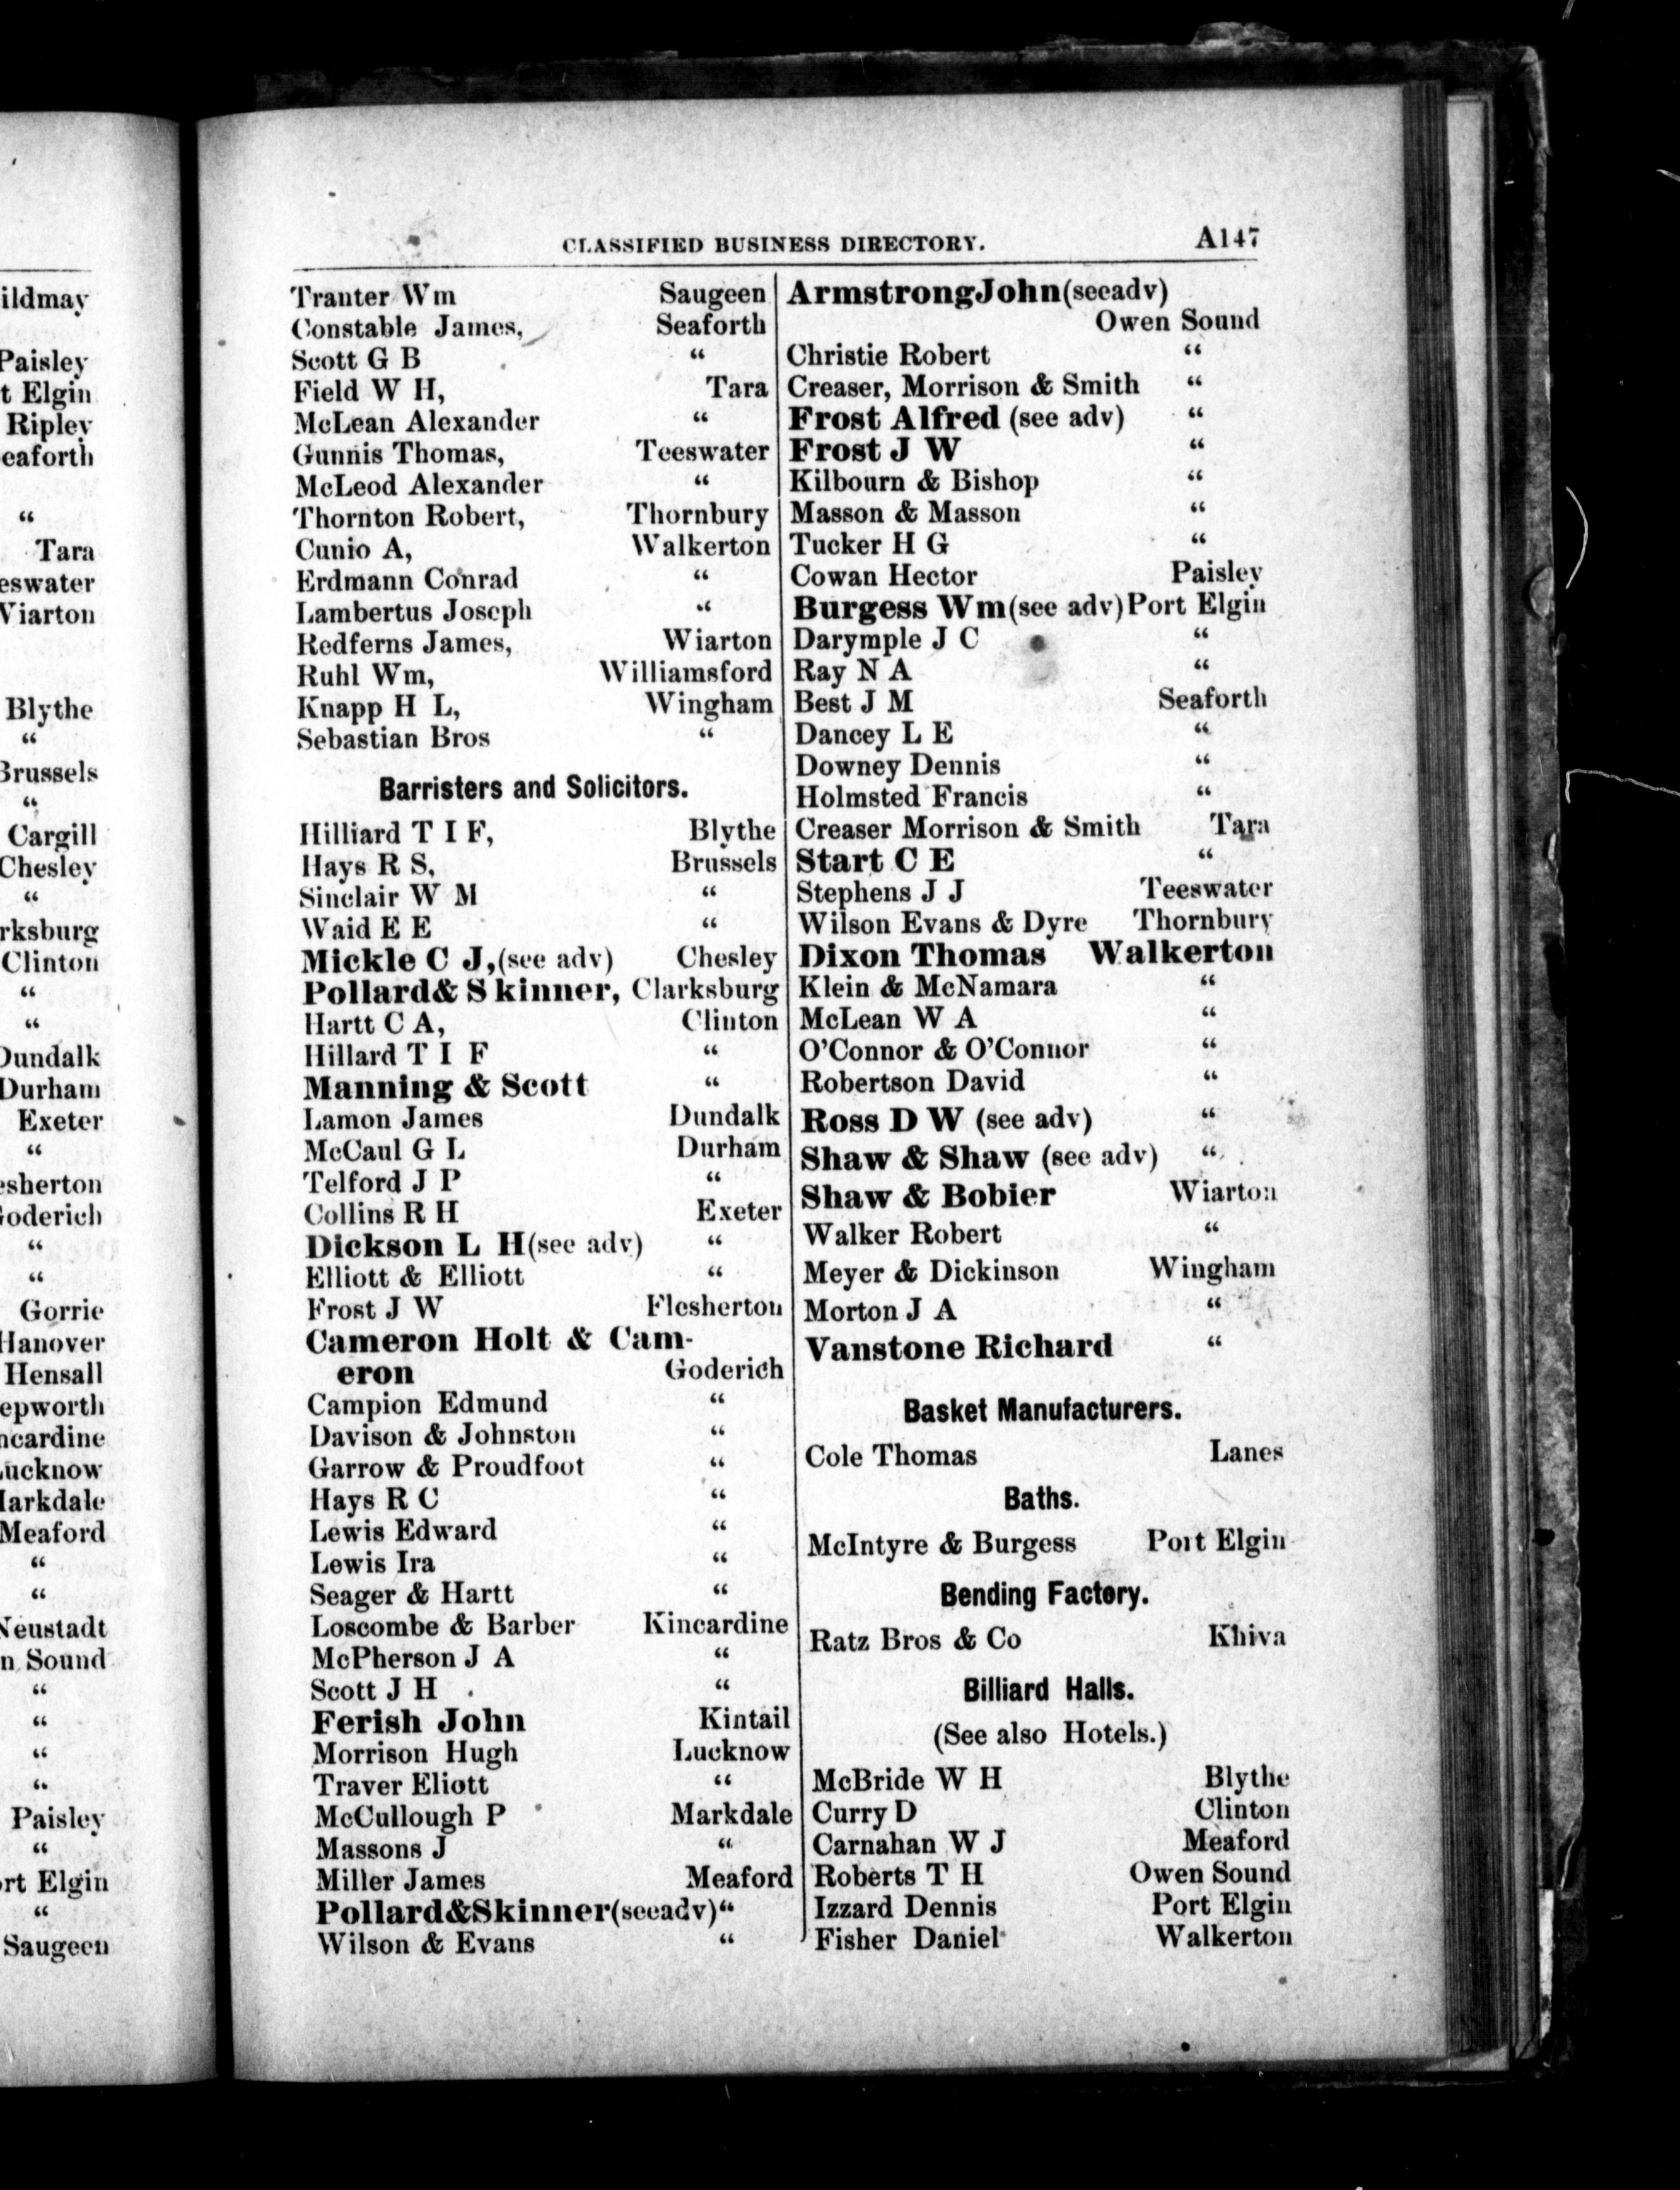 ildmay
Paisley
t Elgin
Ripley
eaforth
“
Tara
eswater
Viarton
Blythe
“
Brussels
“
Cargill
Chesley
“
rksburg
Clinton
“
“
Dundalk
Durham
Exeter
“
esherton
oderich
“
“
Gorrie
Hanover
Hensall
epworth
ncardine
ucknow
arkdale
Meaford
“
“
Neustadt
n Sound
“
“
“
“
Paisley
“
rt Elgin
“
Saugeen
CLASSIFIED BUSINESS DIRECTORY. A147
Tranter Wm Saugeen
Constable James, Seaforth
Scott G B “
Field W H, Tara
McLean Alexander “
Gunnis Thomas, Teeswater
McLeod Alexander “
Thornton Robert, Thornbury
Cunio A, Walkerton
Erdmann Conrad “
Lambertus Joseph “
Redferns James, Wiarton
Ruhl Wm, Williamsford
Knapp H L, Wingham
Sebastian Bros “
Barristers and Solicitors.
Hilliard T I F, Blythe
Hays R S, Brussels
Sinclair W M “
Waid E E “
Mickle C J,(see adv) Chesley
Pollard& Skinner, Clarksburg
Hartt C A, Clinton
Hillard T I F “
Manning & Scott “
Lamon James Dundalk
McCaul G L Durham
Telford J P “
Collins R H Exeter
Dickson L H(see adv) “
Elliott & Elliott “
Frost J W Flesherton
Cameron Holt & Cam-
eron Goderich
Campion Edmund “
Davison & Johnston “
Garrow & Proudfoot “
Hays R C “
Lewis Edward “
Lewis Ira “
Seager & Hartt “
Loscombe & Barber Kincardine
McPherson J A “
Scott J H “
Ferish John Kintail
Morrison Hugh Lucknow
Traver Eliott “
McCullough P Markdale
Massons J “
Miller James Meaford
Pollard&Skinner(seeadv)“
Wilson & Evans “
ArmstrongJohn(seeadv)
Owen Sound
Christie Robert “
Creaser, Morrison & Smith “
Frost Alfred (see adv) “
Frost J W “
Kilbourn & Bishop “
Masson & Masson “
Tucker H G “
Cowan Hector Paisley
Burgess Wm(see adv)Port Elgin
Darymple J C “
Ray N A “
Best J M Seaforth
Dancey L E “
Downey Dennis “
Holmsted Francis “
Creaser Morrison & Smith Tara
Start C E “
Stephens J J Teeswater
Wilson Evans & Dyre Thornbury
Dixon Thomas Walkerton
Klein & McNamara “
McLean W A “
O'Connor & O'Connor “
Robertson David “
Ross D W (see adv) “
Shaw & Shaw (see adv) “
Shaw & Bobier Wiarton
Walker Robert “
Meyer & Dickinson Wingham
Morton J A “
Vanstone Richard “
Basket Manufacturers.
Cole Thomas Lanes
Baths.
McIntyre & Burgess Port Elgin
Bending Factory.
Ratz Bros & Co Khiva
Billiard Halls.
(See also Hotels.)
McBride W H Blythe
Curry D Clinton
Carnahan W J Meaford
Roberts T H Owen Sound
Izzard Dennis Port Elgin
Fisher Daniel Walkerton